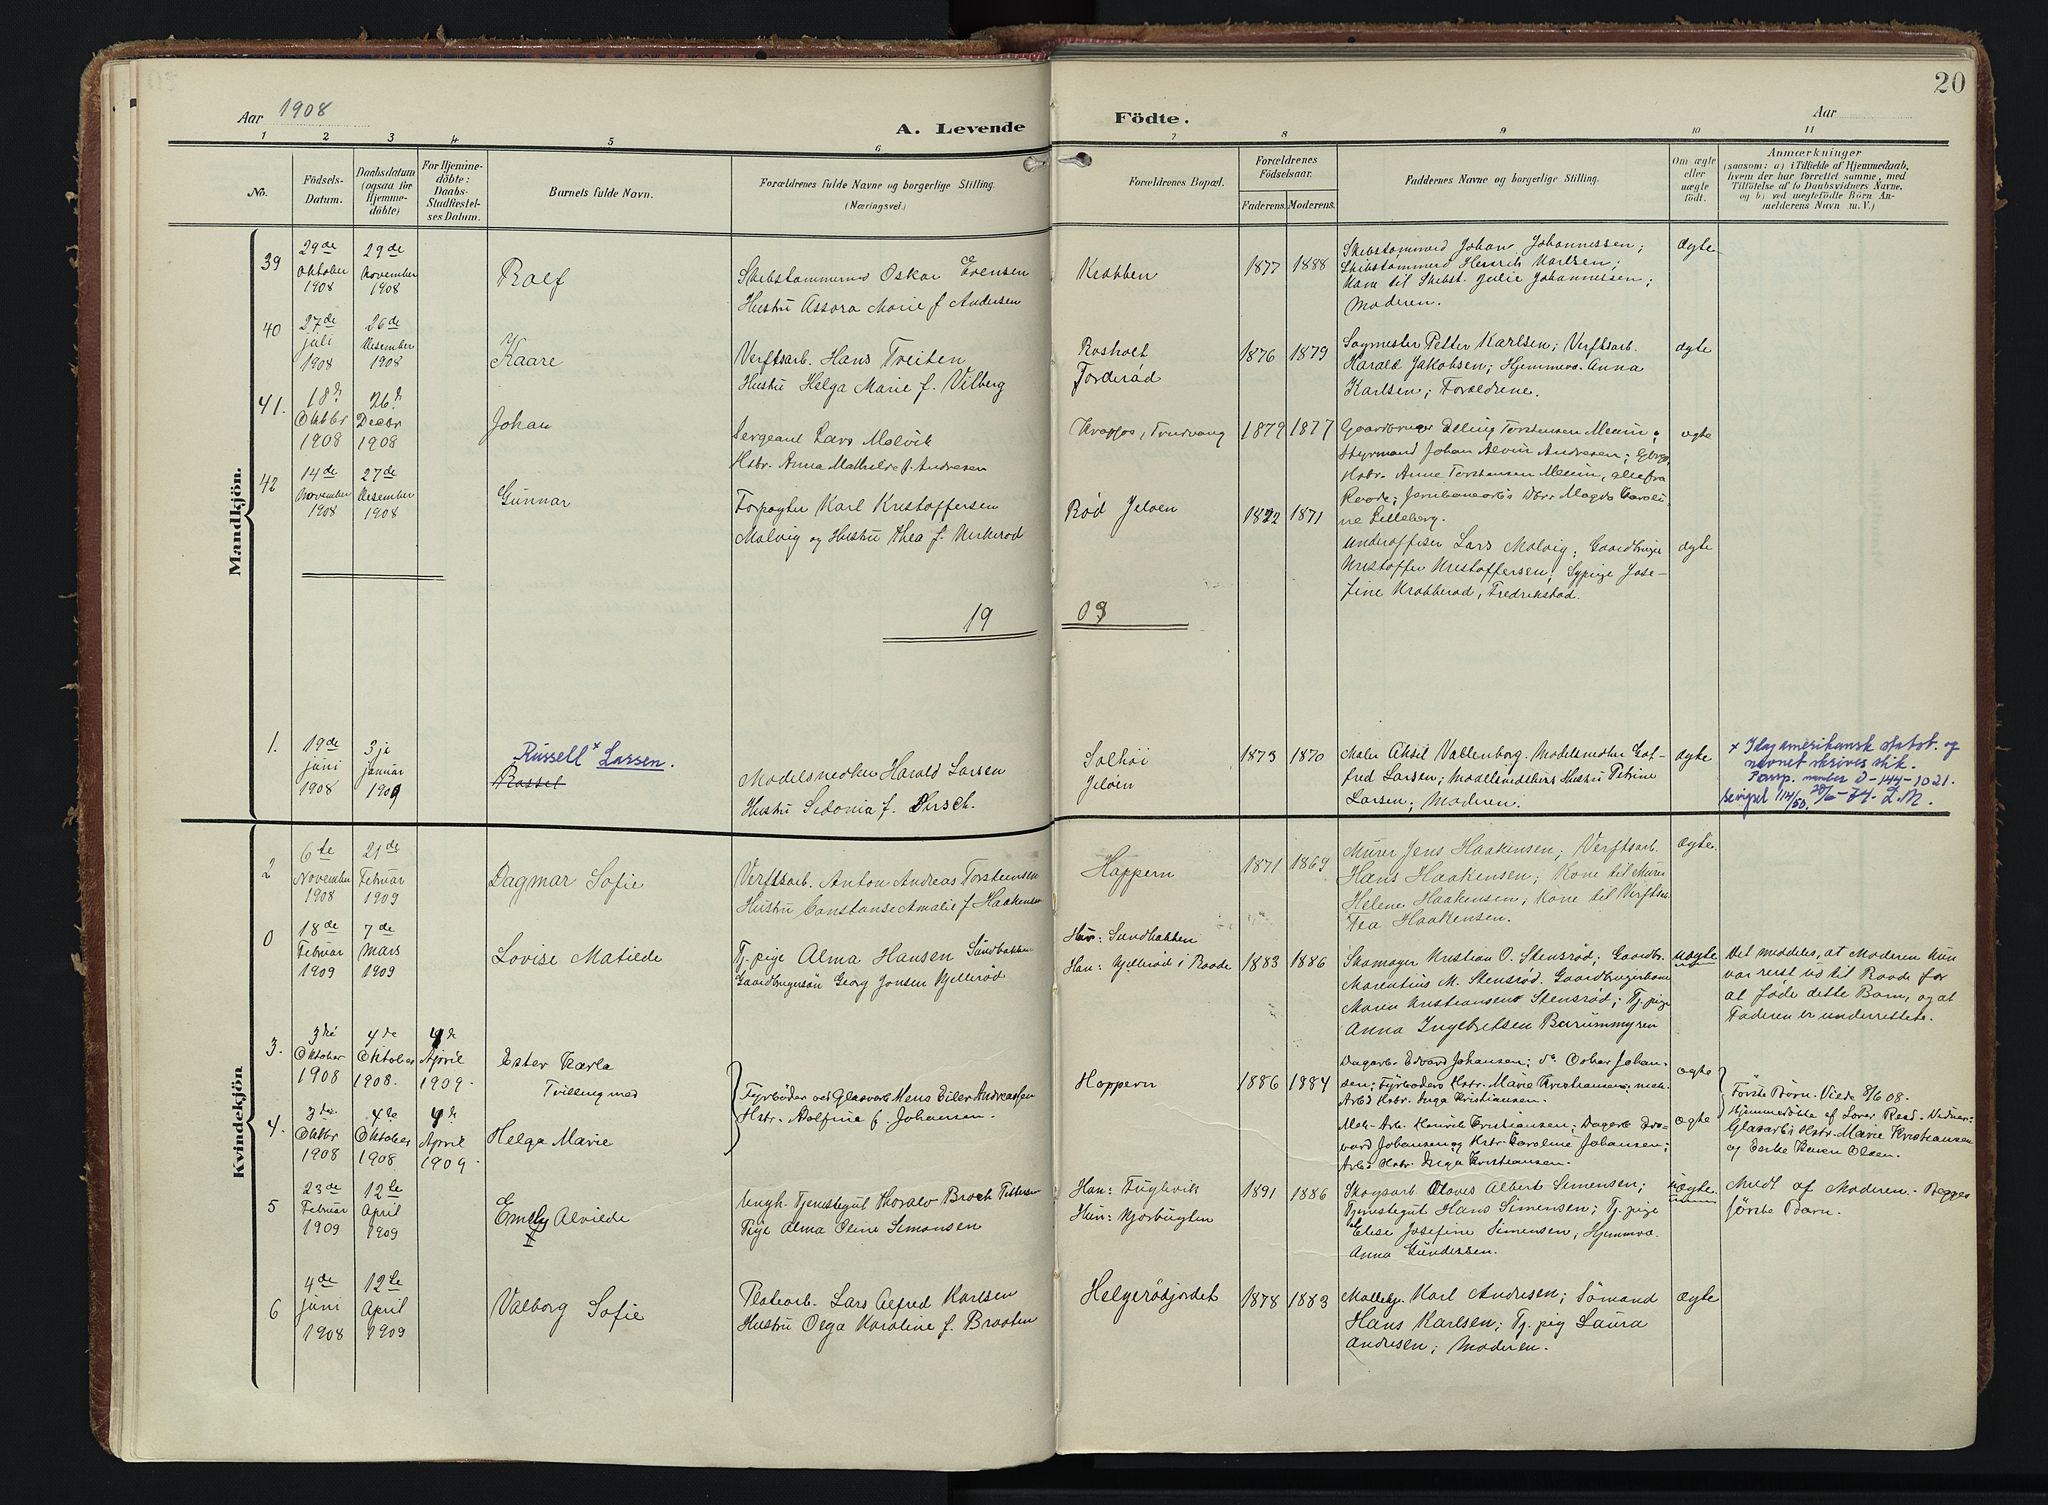 20
Aar 1908
A. Levende
Födte.
Aar
1 2 3 4 5 6 7 8 9 10 11
No.
Födsels-
Datum.
Daabsdatum
(ogsaa for
Hjemme-
döbte)
For Hjemme-
döbte:
Daabs-
Stadfestel-
ses Datum.
Barnets fulde Navn.
Forældrenes fulde Navne og borgerlige Stilling.
(Næringsvei.)
Forældrenes Bopæl.
Forældrenes
Födselsaar.
Faderens. Moderens.
Faddernes Navne og borgerlige Stilling.
Om ægte
eller
uægte
født.
Anmærkninger
(saasom: a) i Tilfælde af Hjemmedaab,
hvem der har forrettet samme, med
Tilföielse af to Daabsvidners Navne,
og b) ved uægtefödte Börn An-
melderens Navn m. V.)
Mandkjön.
39
29de
Oktober
1908
29de
November
1908
Rolf
Skibstømmermd Oskar Evensen
Hustru Assora Marie f Andersen
Krabben
1877 1888
Skibstømmermd Johan Johannessen;
Skibstømmermd Henrik Karlsen;
Kone til Skibst. Julie Johannessen;
Moderen.
ægte
40
27de
juli
1908
26de
Desember
1908
Kaare
Verftsarb. Hans Treiten
Hustru Helga Marie f. Vilberg
Rosholt
Torderød
1876 1879
Sagmester Petter Karlsen; Verftsarb.
Harald Jakobsen; Hjemmev. Anna
Karlsen; Forældrene.
ægte
41.
18de
Oktbr
1908
26de
Decbr
1908
Johan
Sergeant Lars Molvik
Hstr. Anna Mathilde f. Andresen
Krapfos, Trudvang
1879 1877
Gaardbruger Elling Torstensen Meum;
Styrmand Johan Alvin Andresen; Gbrgs.
Hstr. Anne Torstensen Meum, alle fra
Raade; Jernbanearbs Dttr Magda Caroli-
ne Lilleberg.
ægte
42
14de
November
1908
27de
Desember
1908
Gunnar
Forpagter Karl Kristoffersen
Molvig og Hustru Thea f. Kirkerød
Rød Jeløen
1872 1871
Underoffiser Lars Molvig; Gaardbruger
Kristoffer Kristoffersen; Sypige Jose-
fine Krabberød, Fredrikstad.
ægte
19 09
1.
19de
juni
1908
3je
januar
1909
Russell × Larsen.
Rossel
Modelsnedker Harald Larsen
Hustru Sidonia f. Dirsch.
Solhøi
Jeløen
1873 1870
Maler Aksel Vallenborg. Modelsnedker Got-
fred Larsen; Modelsnedkers Hustru Petrine
Larsen; Moderen.
ægte
× I dag amerikansk statsb. og
navnet skrives slik.
Pass. number D-144-1021.
bevigsel 114/50. 20/6-74. L.M.
Kvindekjön
2
6te
November
1908
21de
Februar
1909
Dagmar Sofie
Verftsarb. Anton Andreas Torstensen
Hustru Constanse Amalie f Haakensen
Hoppern
1871 1869
Murer Jens Haakensen; Verftsarb.
Hans Haakensen; Kone til Murer
Helene Haakensen; Kone til Verftsa.
Tea Haakensen.
ægte.
0
18de
Februar
1909
7de
Mars
1909
Lovise Matilde
Tj. pige Alma Hansen Sundbakken
Gaardbrugersøn Georg Jonsen Kjellerød
Hun: Sundbakken
Han: Kjellerød i Raade
1883 1886
Skomager Kristian O. Stensrød; Gaardbr.
Morentius M. Stensrød. Gaardbrugerkone
Maren Kristiansen Stensrød; Tj. pige
Anna Ingebretsen Burummyren
uægte
Det meddeles, at Moderen kun
var reist ud til Raade for
at føde dette Barn, og at
Faderen er underrettet.
3.
3die
Oktober
1908
4de
Oktober
1908.
4de
April
1909.
Ester Karla
Tvilling med
Fyrbøder ved Glasverk Hans Eiler Andreassen
Hstr. Adolfine f Johansen.
Hoppern
1886 1884
Dagarb. Edvard Johansen; do Oskar Johan-
sen; Fyrbøders Hstr. Marie Kristiansen; mek.
Arbd Hstr. Inga Kristiansen.
ægte
Første Børn. Viede 8/6 08.
Hjemmedøbte af Lærer Reed. Vidner:
Glasarbs Hstr. Marie Kristiansen
og Enke Karen Olsen.
4.
3die
Oktbr
1908
4de
Oktober
1908
4de
April
1909.
Helga Marie
Mek. Arb. Henrik Cristiansen; Dagarb. Ed-
vard Johansen og Hstr. Caroline Johansen;
Arbd Hstr. Inga Kristiansen.
ægte
5
23de
Februar
1909
12te
April
1909
Emely Alvilde
Ungk. Tjenestegut Thoralv Broch Pettersen
Pige Alma Oline Simonsen
Han: Fuglevik
Hun: Kjorbugten
1891 1886
Skogsarb. Olaves Albert Simensen;
Tjenestegut Hans Simensen; Tj. pige
Elise Josefine Simensen, Hjemmev.
Anna Gundersen.
uægte
Mudl. af Moderen. Begges
første Barn.
6
4de
juni
1908
12te
April
1909
Valborg Sofie
Platearb. Lars Alfred Karlsen
Hustru Olga Karoline f. Braaten
Helgerødjordet
1878 1883
Møllekj. Karl Andresen; Sømand
Hans Karlsen; Tj. pig Laura
Andresen; Moderen.
ægte